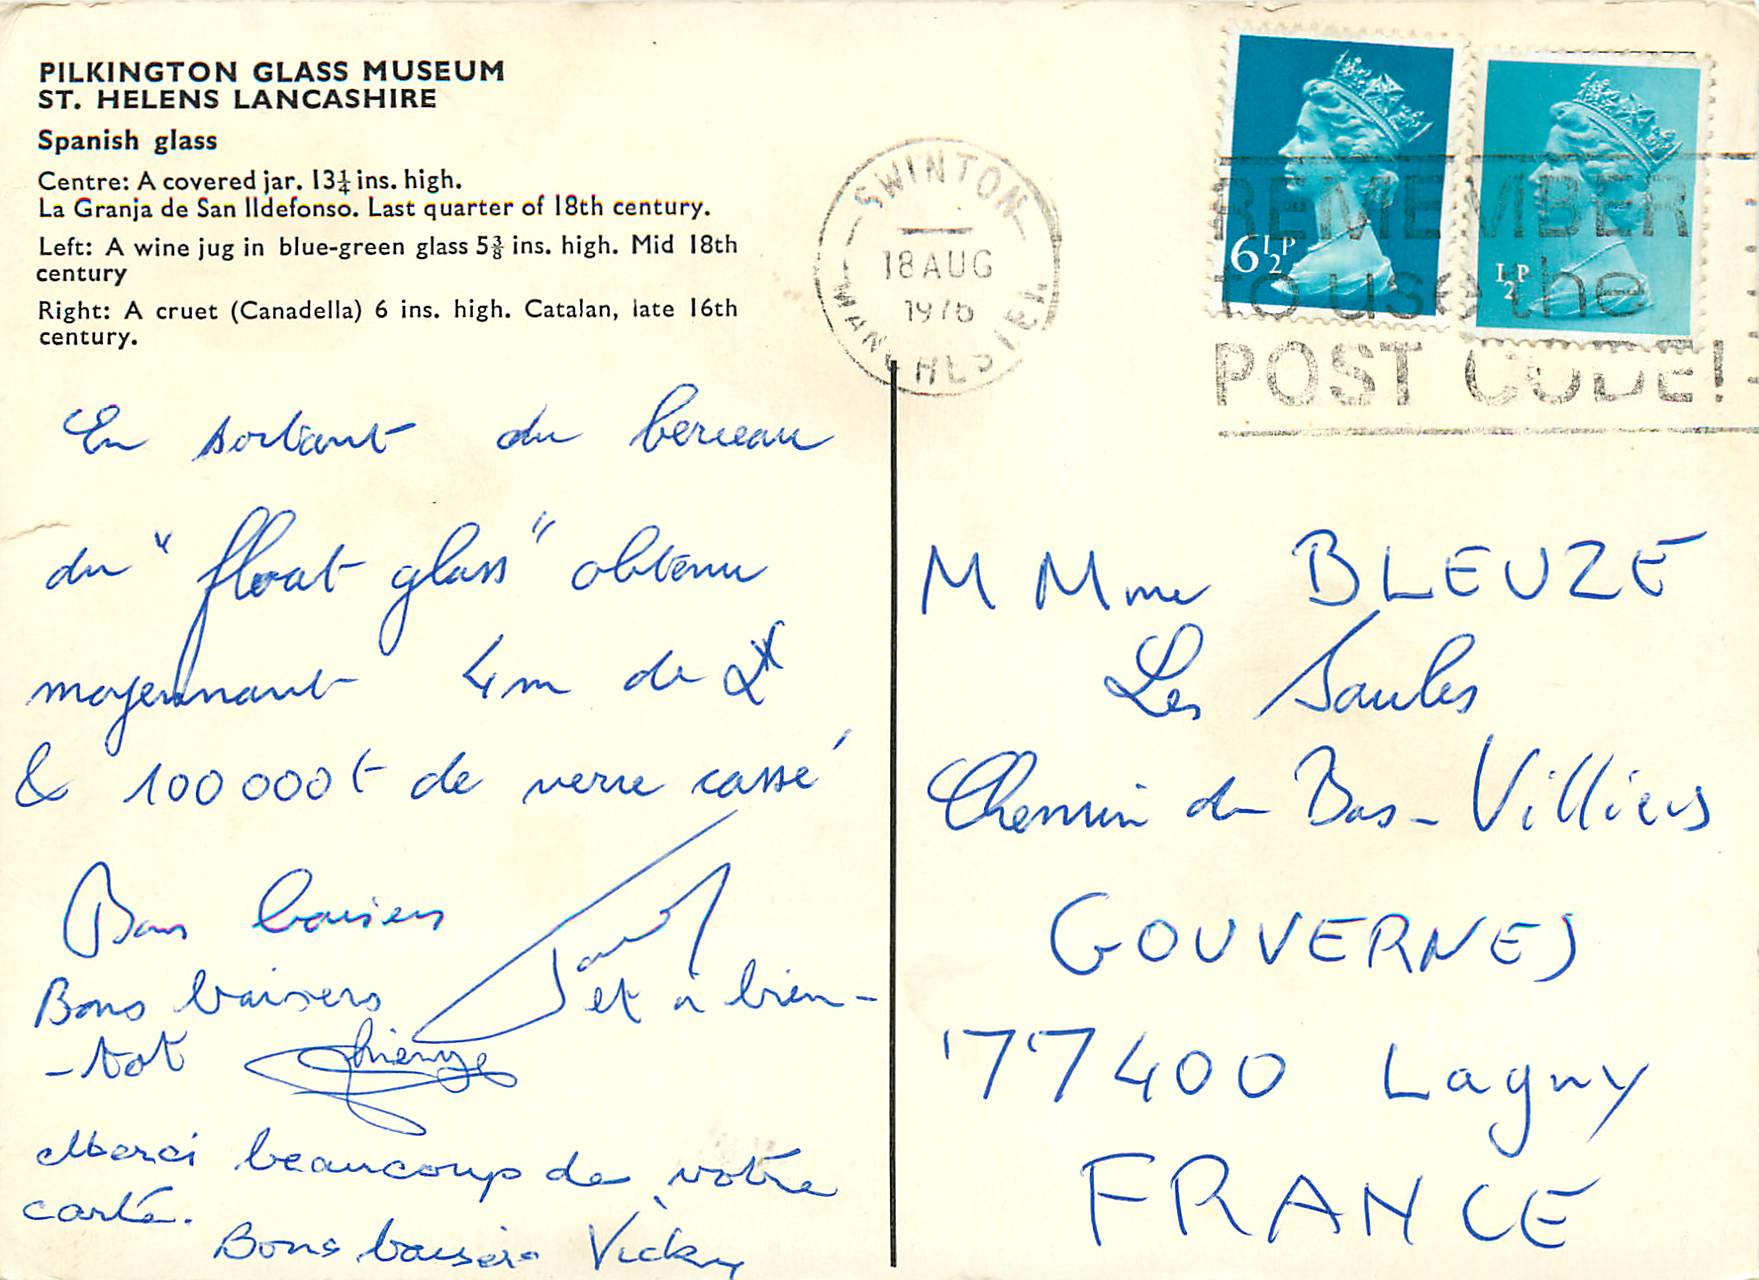 PILKINGTON GLASS MUSEUM
ST. HELENS LANCASHIRE
Spanish glass
Centre: A covered jar. 13¼ ins. high.
La Granja de San Ildefonso. Last quarter of 18th century.
Left: A wine jug in blue-green glass 5⅜ ins. high. Mid 18th
century
Right: A cruet (Canadella) 6 ins. high. Catalan, late 16th
century.
SWINTON
18 AUG
1976
MANCHESTER
6½P
½P
REMEMBER
to use the
POST CODE!
En sortant du berceau
du "float glass" obtenu
moyennant 4m de £
& 100 000 t de verre cassé
Bons baisers
Bons baisers et à bien-
-tot
Merci beaucoup de votre
carte.
Bons baisers Vicky
M Mme BLEUZE
Les Saules
Chemin du Bas-Villiers
GOUVERNES
77400 Lagny
FRANCE